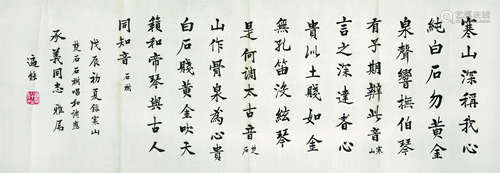 寒山深稱我心
純白石勿黃金
泉聲響撫伯琴
有子期辨此音 寒山
言之深達者心
貴以土賤如金
無孔笛没絃琴
是何調太古音 楚石
山作骨泉為心貴
白石賤黃金吹天
籟和帝琴與古人
同知音 石樹
戊辰初夏錄寒山
楚石石樹唱和詩應
承義同志 雅屬